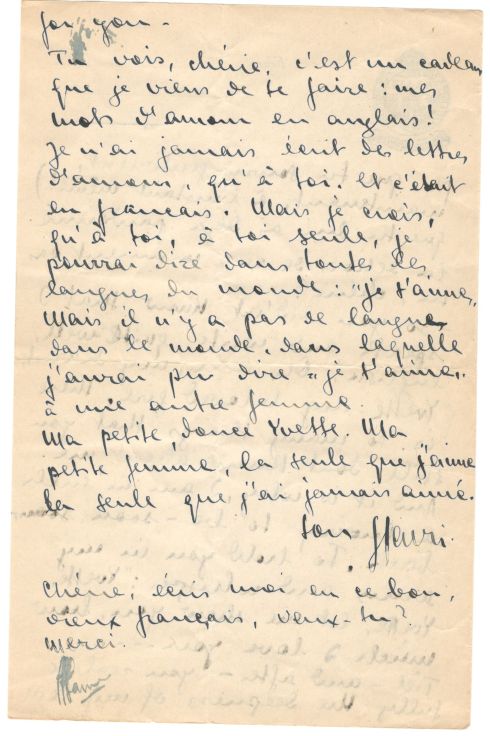 for you -
Tu vois, chérie, c'est un cadeau
que je viens de te faire : mes
mots d'amour en anglais !
Je n'ai jamais écrit des lettres
d'amour, qu'à toi. Et c'était
en français. Mais je crois,
qu'à toi, à toi seule, je
pourrai dire dans toutes les
langues du monde : "je t'aime„
Mais il n'y a pas de langue
dans le monde, dans laquelle
j'aurai pu dire "je t'aime„
à une autre femme.
Ma petite, douce Yvette. Ma
petite femme, la seule que j'aime
la seule que j'ai jamais aimé.
ton Henri.
Chérie, écris moi en ce bon,
vieux français, veux-tu ?
Merci.